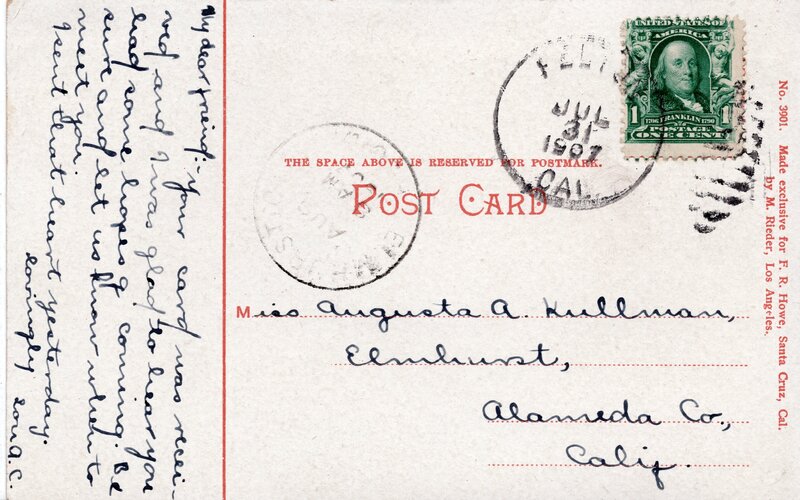 My dear friend:- Your card was recei-
ved and I was glad to hear you
had some hopes of coming. Be
sure and let us know when to
meet you.
I sent that heart yesterday.
Lovingly
Lou A. C.
THE SPACE ABOVE IS RESERVED FOR POSTMARK.
POST CARD
FELTON
JUL
31
1907
CAL.
ELMHURST
AUG
AM
UNITED STATES OF
AMERICA
1 1706 FRANKLIN 1790 1
POSTAGE
ONE CENT
Miss Augusta A. Kullman,
Elmhurst,
Alameda Co.,
Calif.
No. 3901. Made exclusive for F. R. Howe, Santa Cruz, Cal.
by M. Rieder, Los Angeles.